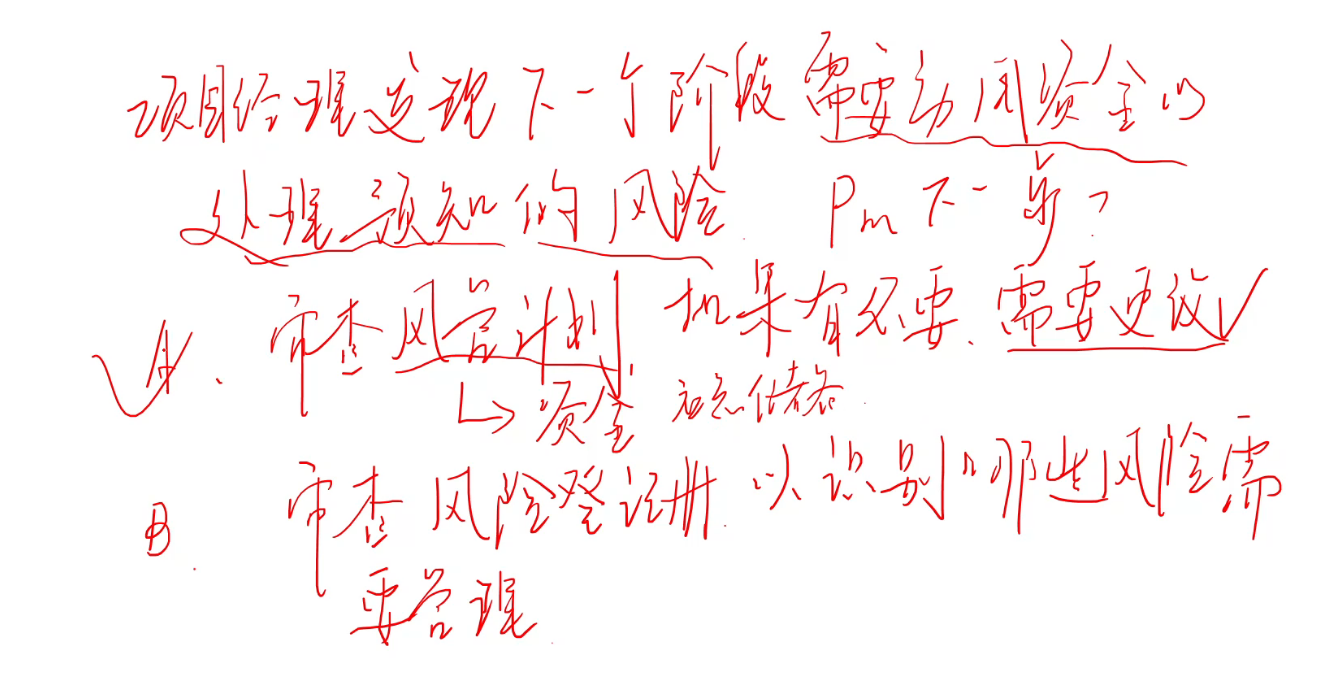 项目经理发现下一个阶段需要动用资金以
处理预知的风险. Pm下一步?
A. 审查风管计划, 如果有必要、需要更改
↳ 资金 应急储备
B. 审查风险登记册. 以识别哪些风险需
要管理